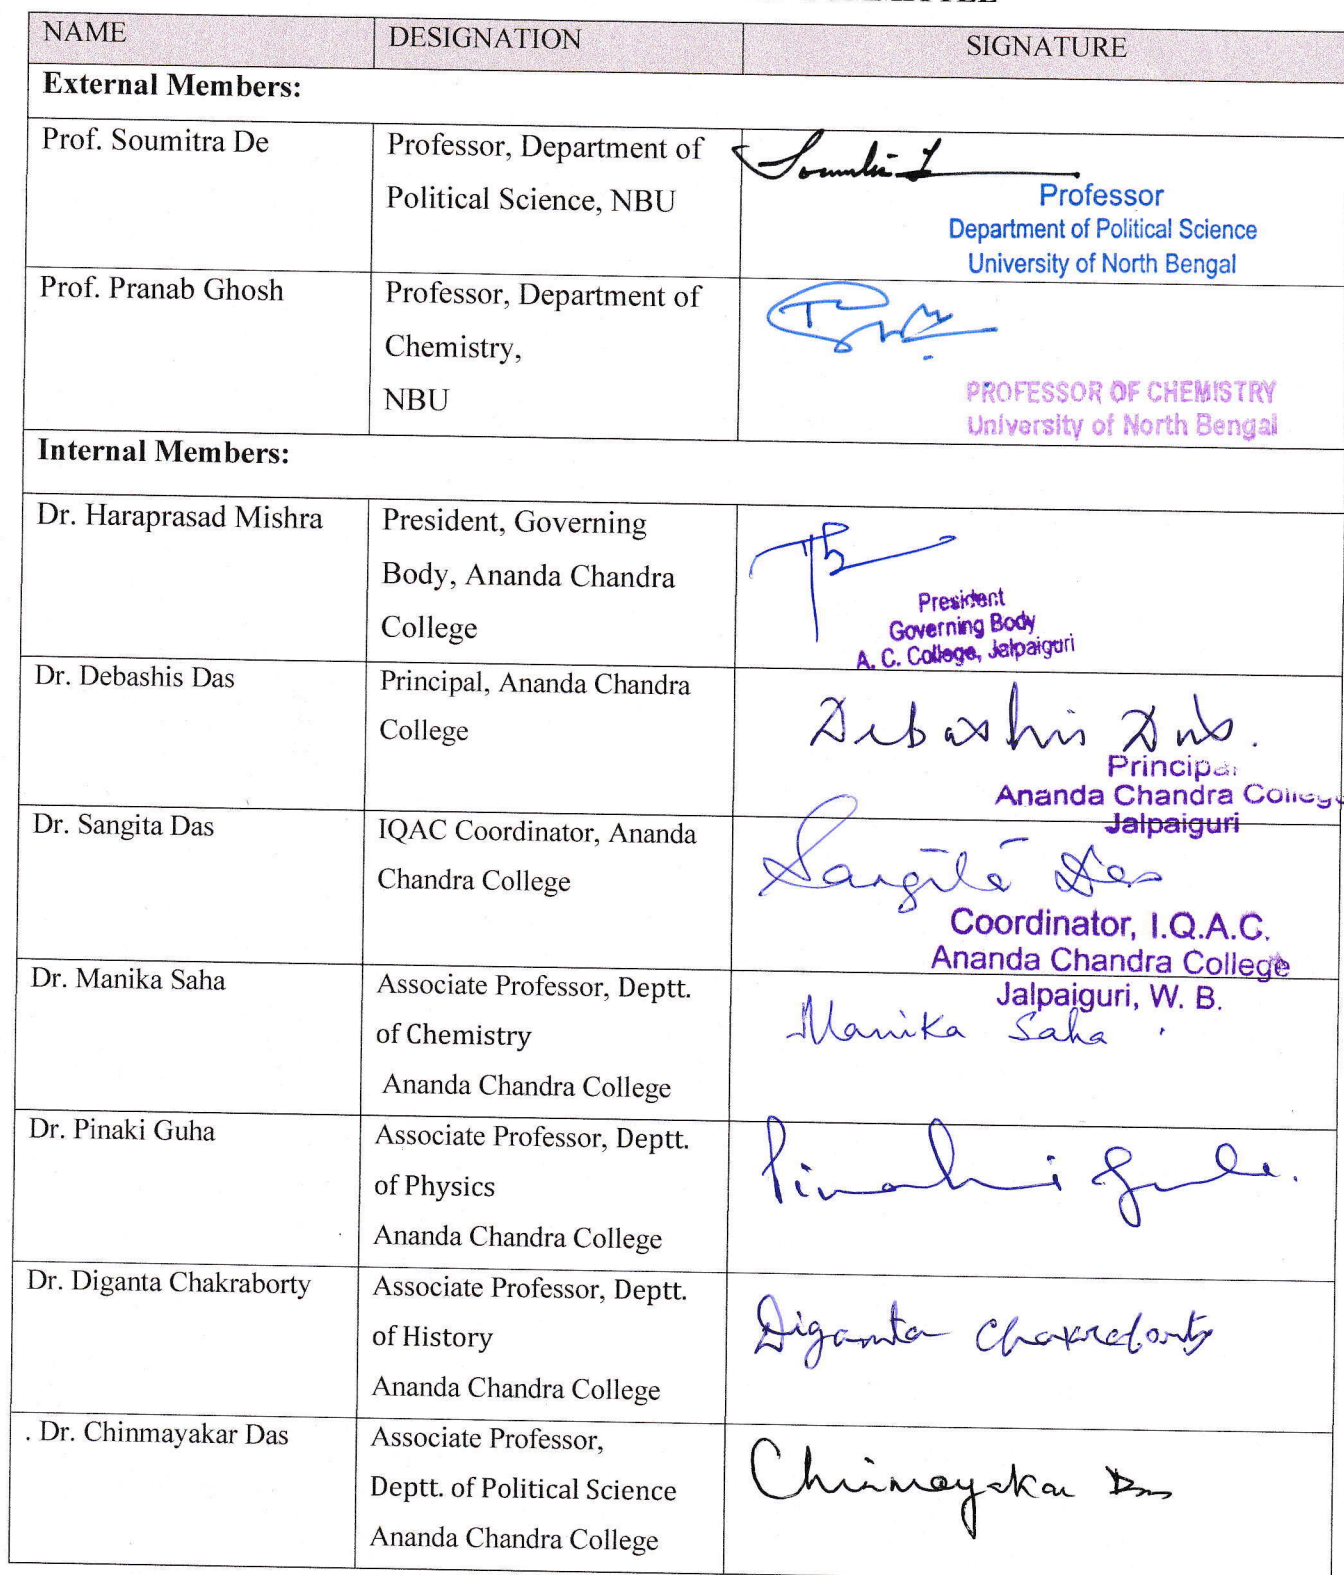 NAME DESIGNATION SIGNATURE
External Members:
Prof. Soumitra De
Professor, Department of
Political Science, NBU
Professor
Department of Political Science
University of North Bengal
Prof. Pranab Ghosh
Professor, Department of
Chemistry,
NBU
PROFESSOR OF CHEMISTRY
University of North Bengal
Internal Members:
Dr. Haraprasad Mishra
President, Governing
Body, Ananda Chandra
College
President
Governing Body
A. C. College, Jalpaiguri
Dr. Debashis Das
Principal, Ananda Chandra
College
Debashis Das.
Principal
Ananda Chandra College
Jalpaiguri
Dr. Sangita Das
IQAC Coordinator, Ananda
Chandra College
Sangita Das
Coordinator, I.Q.A.C.
Ananda Chandra College
Jalpaiguri, W. B.
Dr. Manika Saha
Associate Professor, Deptt.
of Chemistry
Ananda Chandra College
Manika Saha.
Dr. Pinaki Guha
Associate Professor, Deptt.
of Physics
Ananda Chandra College
Pinaki Guha.
Dr. Diganta Chakraborty
Associate Professor, Deptt.
of History
Ananda Chandra College
Diganta Chakraborty
. Dr. Chinmayakar Das
Associate Professor,
Deptt. of Political Science
Ananda Chandra College
Chinmayakar Das